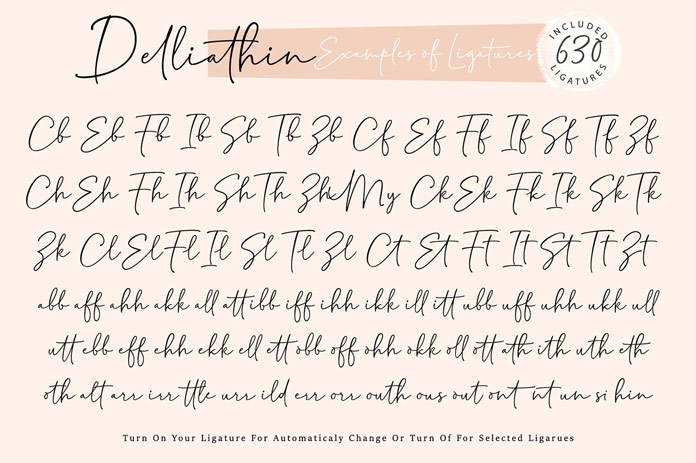 Delliathin Examples of Ligatures INCLUDED 630 LIGATURES
Cb Eb Fb Ib Sb Tb Zb Cf Ef Ff If Sf Tf Zf
Ch Eh Fh Ih Sh Th Zh My Ck Ek Fk Ik Sk Tk
Zk Cl El Fl Il Sl Tl Zl Ct Et Ft It St Tt Zt
abb aff ahh akk all att ibb iff ihh ikk ill itt ubb uff uhh ukk ull
utt ebb eff ehh ekk ell ett obb off ohh okk oll ott ath ith uth eth
oth alt arr irr ttle urr ild err orr outh ous out ont nt un si hin
Turn On Your Ligature For Automaticaly Change Or Turn Of For Selected Ligarues